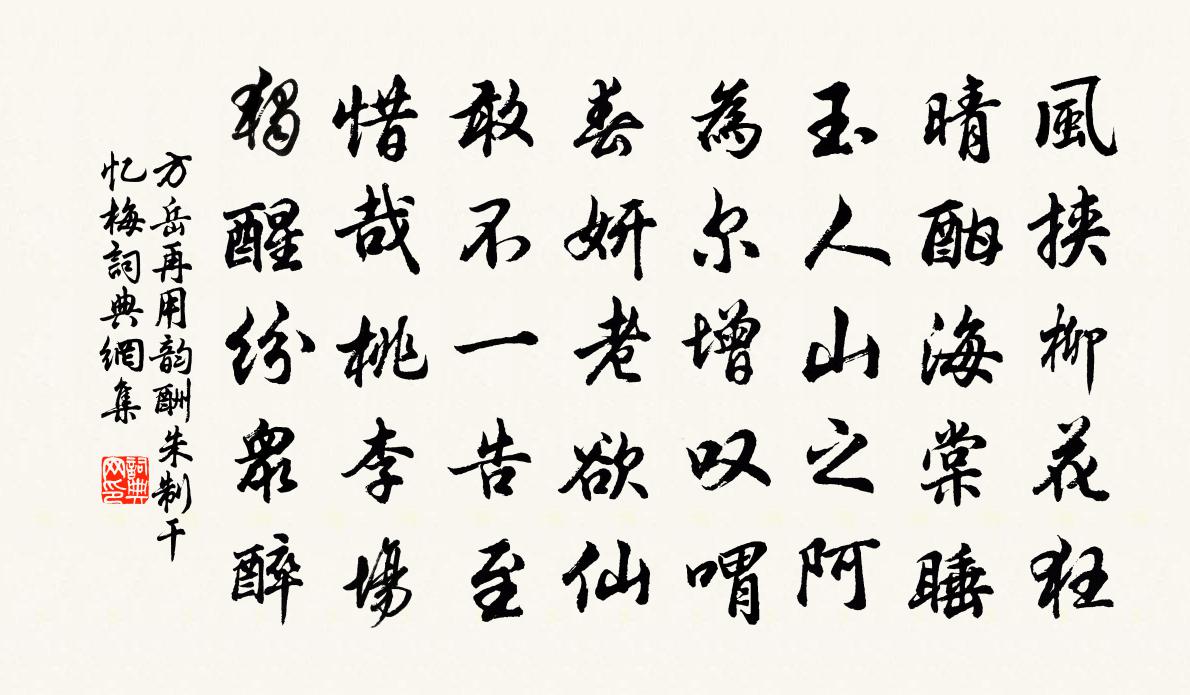 風挾柳花狂
晴酣海棠睡
玉人山之阿
為尔增叹喟
春妍老欲仙
敢不一告至
惜哉桃李場
獨醒紛眾醉
方岳再用韵酬朱制干
忆梅詞典網集
詞典网印